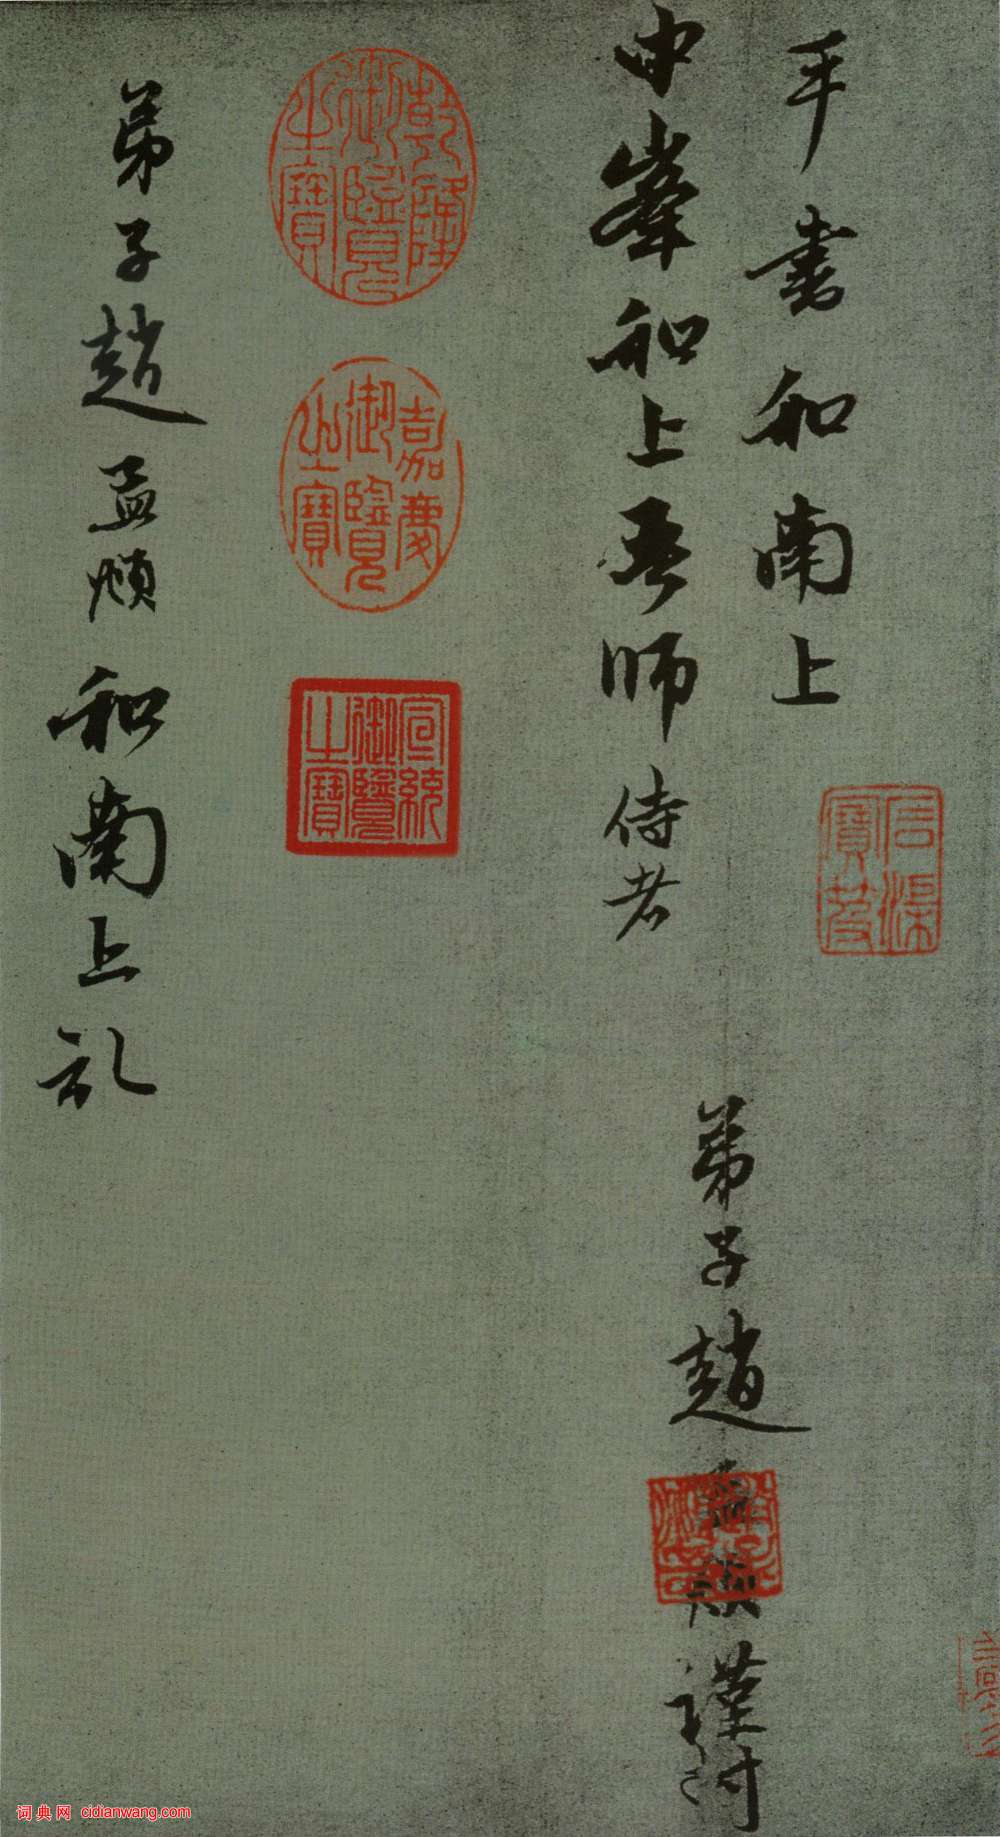 手書和南上
石渠寶笈
中峯和上吾師侍者
弟子趙孟頫謹封
趙氏子昂
乾隆御覽之寶
嘉慶御覽之寶
宣統御覽之寶
弟子趙孟頫和南上
词典网 cidianwang.com